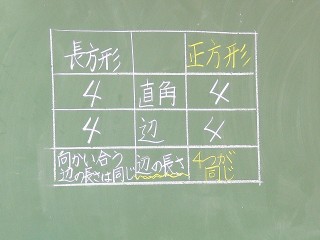 長方形 正方形
4 直角 4
4 辺 4
向かい合う
辺の長さは同じ
辺の長さ
4つが
同じ